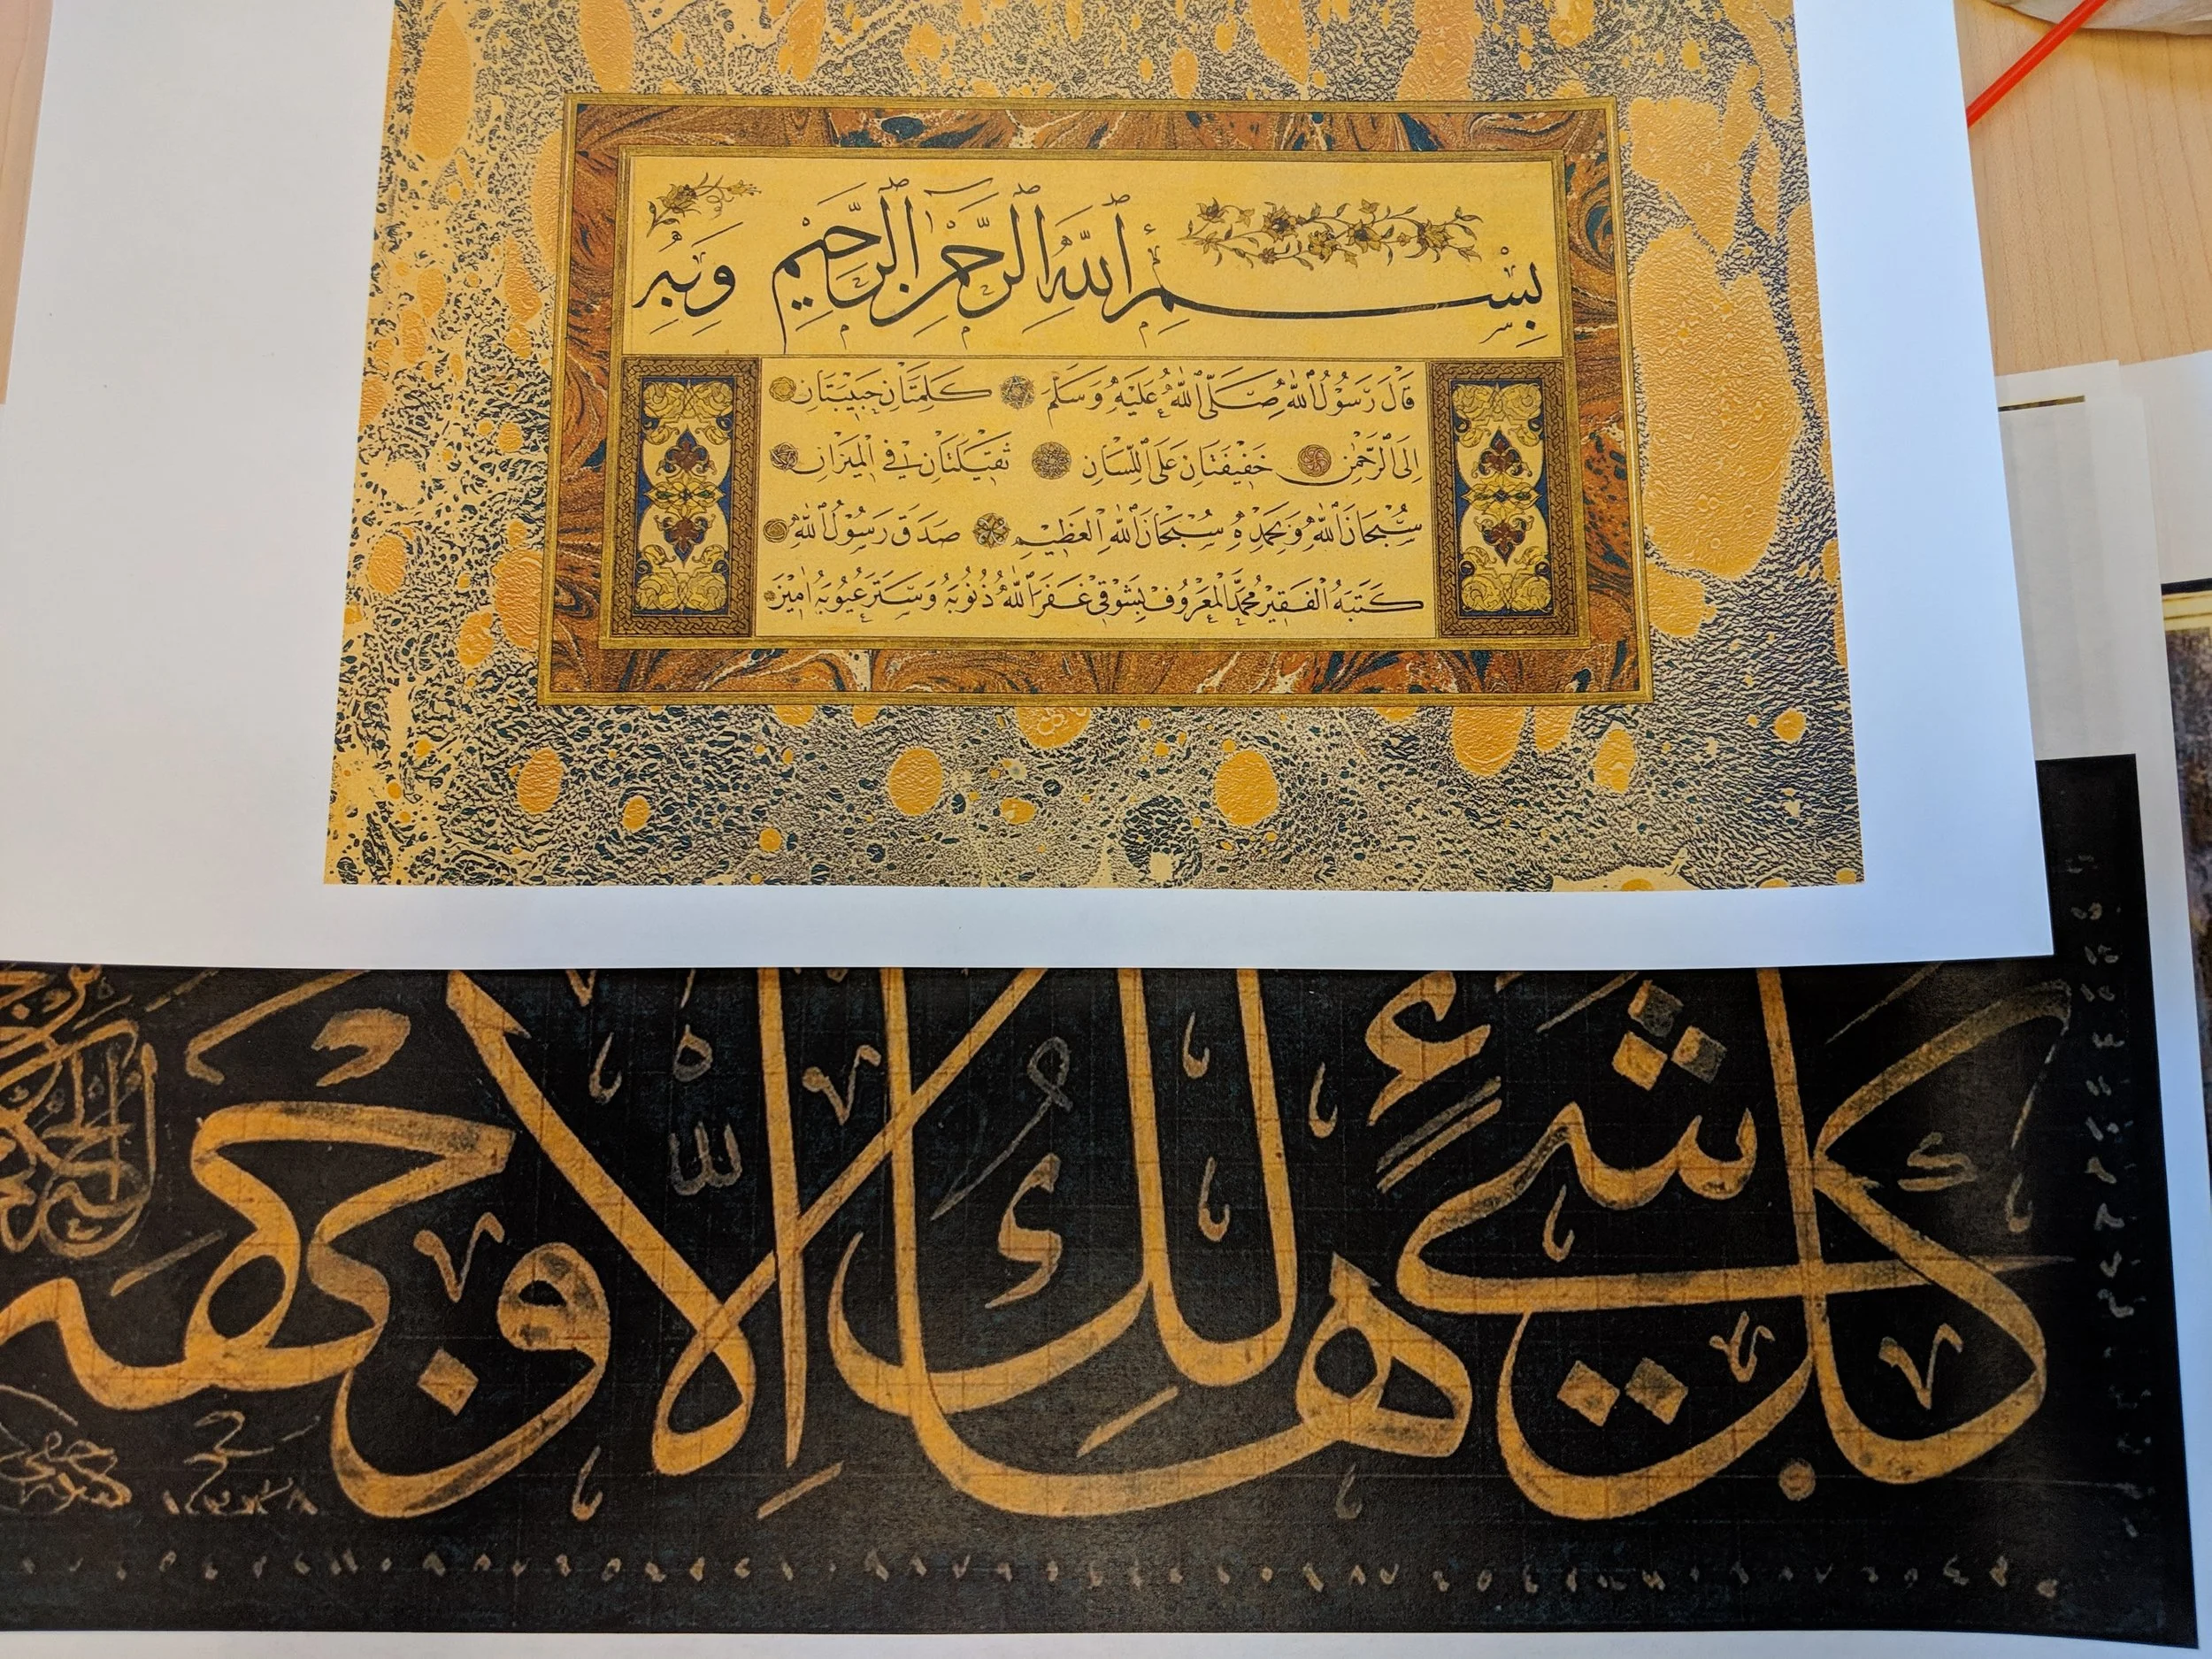 بِسْمِ اللهِ الرَّحْمٰنِ الرَّحِيْمِ وَبِهِ
قَالَ رَسُوْلُ اللهِ صَلَّى اللهُ عَلَيْهِ وَسَلَّمَ كَلِمَتَانِ حَبِيْبَتَانِ
اِلَى الرَّحْمٰنِ خَفِيْفَتَانِ عَلَى اللِّسَانِ ثَقِيْلَتَانِ فِي الْمِيْزَانِ
سُبْحَانَ اللهِ وَبِحَمْدِهِ سُبْحَانَ اللهِ الْعَظِيْمِ صَدَقَ رَسُوْلُ اللهِ
كَتَبَهُ الْفَقِيْرُ مُحَمَّد الْمَعْرُوفْ بِشَوْقِي غَفَرَ اللهُ ذُنُوْبَهُ وَسَتَرَ عُيُوْبَهُ اٰمِيْنَ
كل شيءٍ هالك الا وجهه